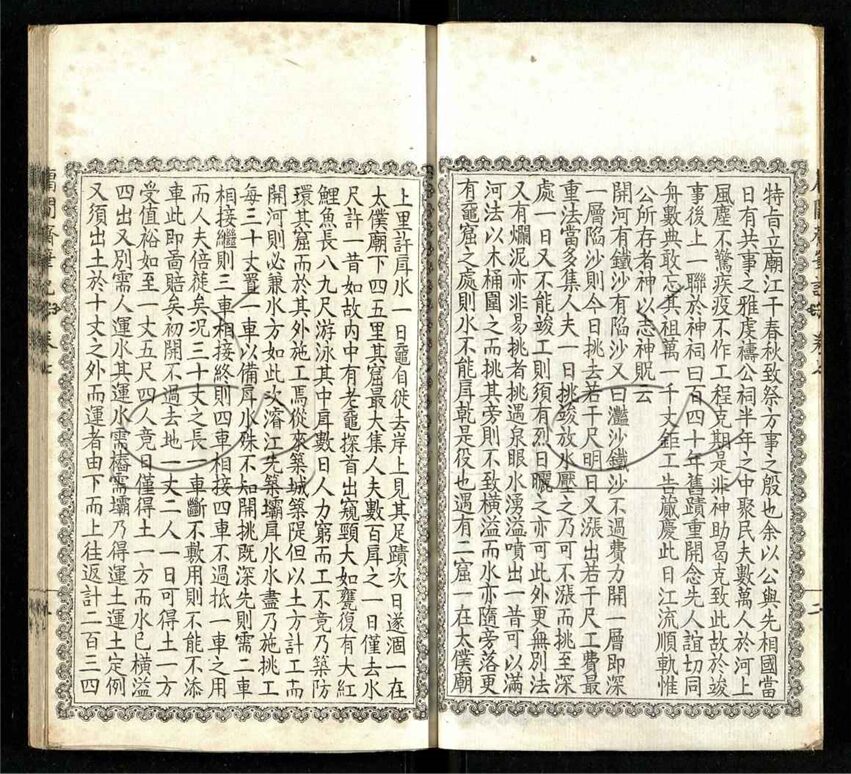 特旨立廟江干春秋致祭方事之殷也余以公與先相國當
日有共事之雅虔禱公祠半年之中聚民夫數萬人於河上
風塵不驚疾疫不作工程克期是非神助曷克致此故於竣
事後上一聯於神祠曰百四十年舊蹟重開念先人誼切同
舟數典敢忘其祖萬一千丈鉅工告蕆慶此日江流順軌惟
公所存者神以志神貺云
開河有鐵沙有陷沙又曰灩沙鐵沙不過費力開一層即深
一層陷沙則今日挑去若干尺明日又漲出若干尺工費最
重法當多集人夫一日挑竣放水壓之乃可不漲而挑至深
處一日又不能竣工則須有烈日曬之亦可此外更無別法
又有爛泥亦非易挑者挑遇泉眼水湧溢噴出一昔可以滿
河法以木桶圍之而挑其旁則不致橫溢而水亦隨旁落更
有黿窟之處則水不能戽乾是役也遇有二窟一在太僕廟
上里許戽水一日黿自徙去岸上見其足蹟次日遂涸一在
太僕廟下四五里其窟最大集人夫數百戽之一日僅去水
尺許一昔如故內中有老黿探首出窺頸大如甕復有大紅
鯉魚長八九尺游泳其中戽數日人力窮而工不竟乃築防
環其窟而於其外施工焉從來築城築隄但以土方計工而
開河則必兼水方如此次濬江先築壩戽水水盡乃施挑工
每三十丈置一車以備戽水殊不知開挑既深先則需二車
相接繼則三車相接終則四車相接四車不過抵一車之用
而人夫倍蓰矣況三十丈之長一車斷不敷用則不能不添
車此即啚賠矣初開不過去地一丈二人一日可得土一方
受值裕如至一丈五尺四人竟日僅得土一方而水已橫溢
四出又別需人運水其運水需樁需壩乃得運土運土定例
又須出土於十丈之外而運者由下而上往返計二百三四
庸閒齋筆記 卷七